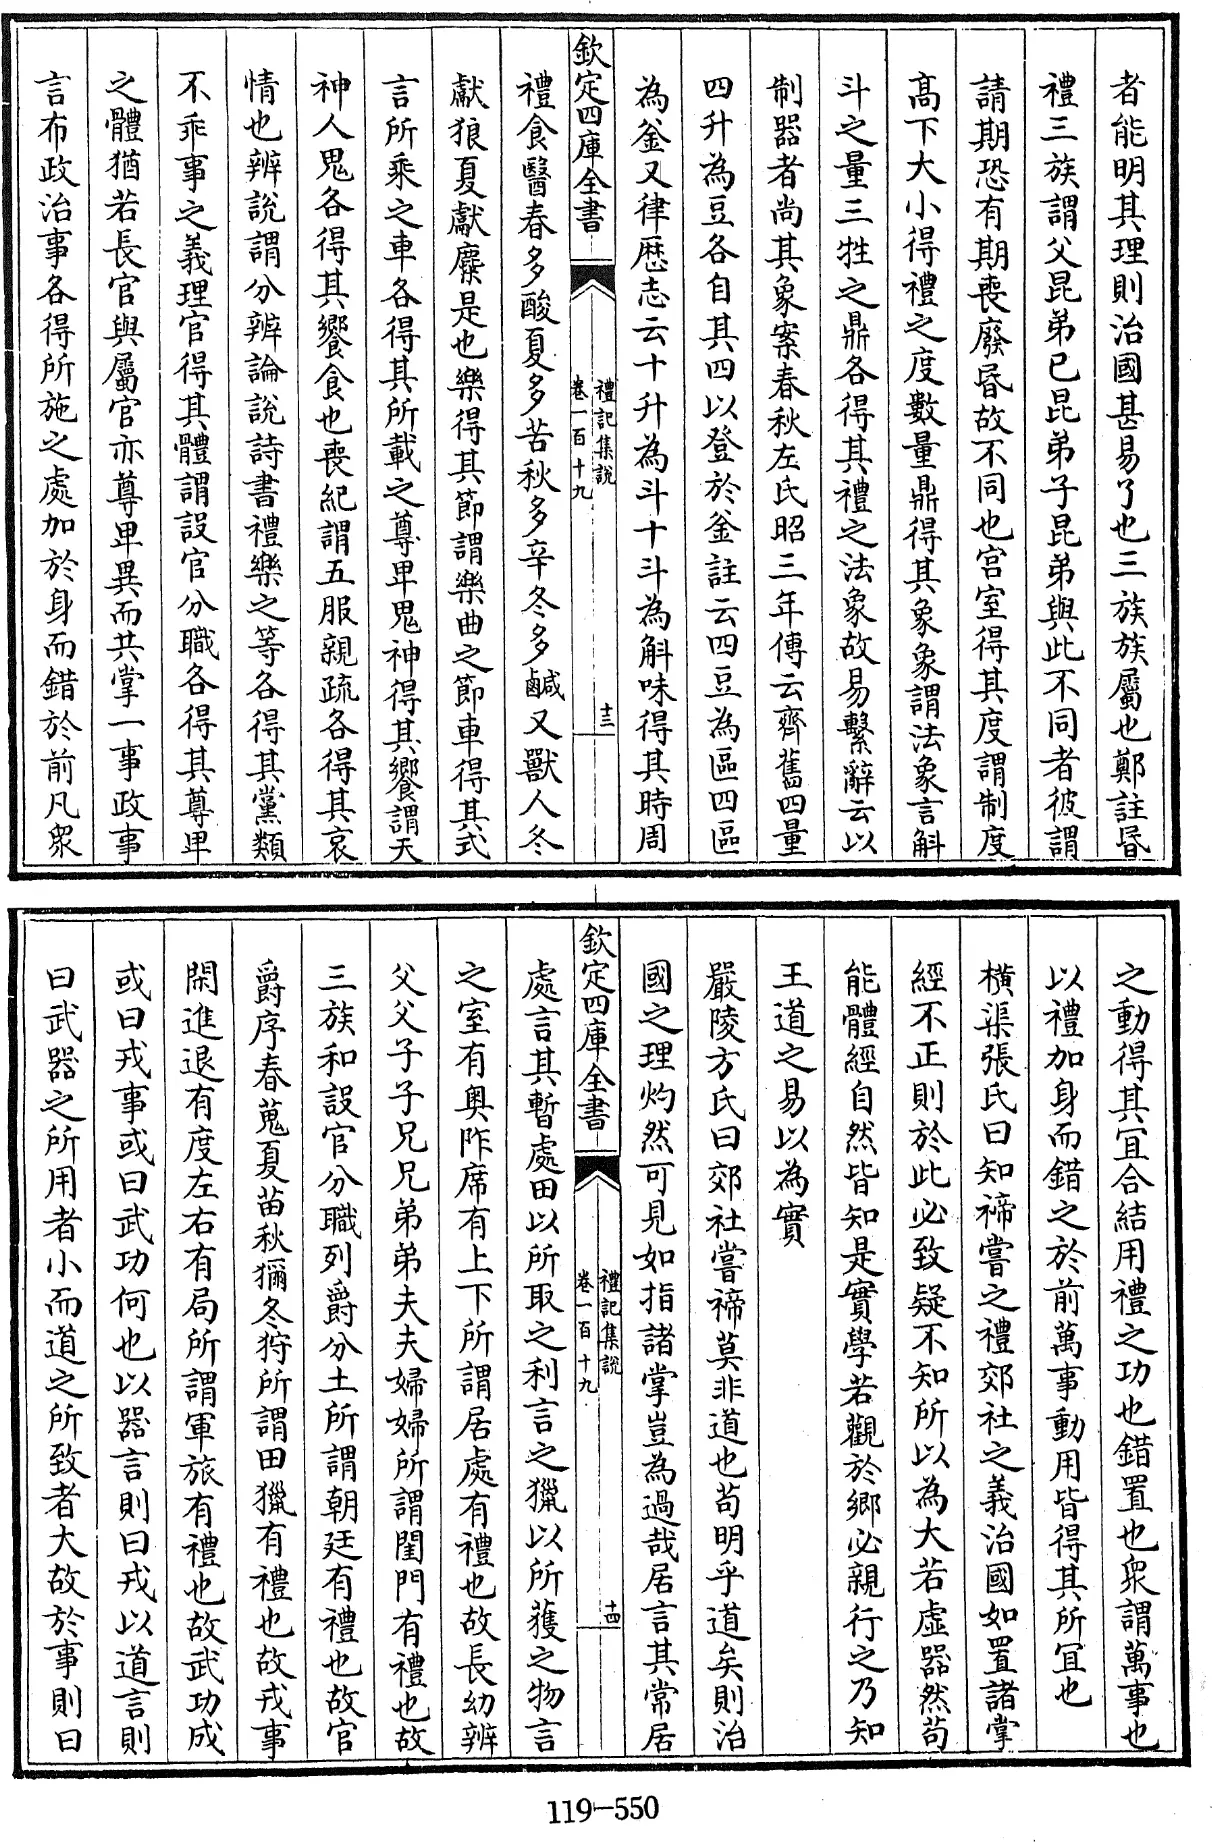 者能明其理則治國甚易了也三族族屬也鄭註昏
禮三族謂父昆弟已昆弟子昆弟與此不同者彼謂
請期恐有期喪廢昏故不同也宫室得其度謂制度
髙下大小得禮之度數量鼎得其象象謂法象言斛
斗之量三牲之鼎各得其禮之法象故易繫辭云以
制器者尚其象案春秋左氏昭三年傳云齊舊四量
四升為豆各自其四以登於釜註云四豆為區四區
為釜又律歴志云十升為斗十斗為斛味得其時周
欽定四庫全書
禮記集說
卷一百十九
十三
禮食醫春多酸夏多苦秋多辛冬多鹹又獸人冬
獻狼夏獻麋是也樂得其節謂樂曲之節車得其式
言所乘之車各得其所載之尊卑鬼神得其饗謂天
神人鬼各得其饗食也喪紀謂五服親疏各得其哀
情也辨說謂分辨論說詩書禮樂之等各得其黨類
不乖事之義理官得其體謂設官分職各得其尊卑
之體猶若長官與屬官亦尊卑異而共掌一事政事
言布政治事各得所施之處加於身而錯於前凡衆
之動得其宜合結用禮之功也錯置也衆謂萬事也
以禮加身而錯之於前萬事動用皆得其所宜也
橫渠張氏曰知禘嘗之禮郊社之義治國如置諸掌
經不正則於此必致疑不知所以為大若虛器然苟
能體經自然皆知是實學若觀於鄉必親行之乃知
王道之易以為實
嚴陵方氏曰郊社嘗禘莫非道也茍明乎道矣則治
國之理灼然可見如指諸掌豈為過哉居言其常居
欽定四庫全書
禮記集說
卷一百十九
十四
處言其暫處田以所取之利言之獵以所獲之物言
之室有奥阼席有上下所謂居處有禮也故長幼辨
父父子子兄兄弟弟夫夫婦婦所謂閨門有禮也故
三族和設官分職列爵分土所謂朝廷有禮也故官
爵序春蒐夏苗秋獮冬狩所謂田獵有禮也故戎事
閑進退有度左右有局所謂軍旅有禮也故武功成
或曰戎事或曰武功何也以器言則曰戎以道言則
曰武器之所用者小而道之所致者大故於事則曰
119-550